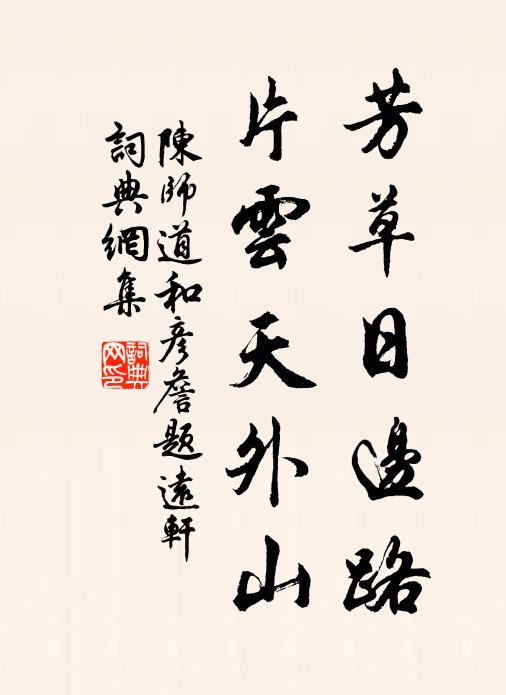 芳草日邊路
片雲天外山
陳師道和彥詹題遠軒
詞典網集
詞典
网印